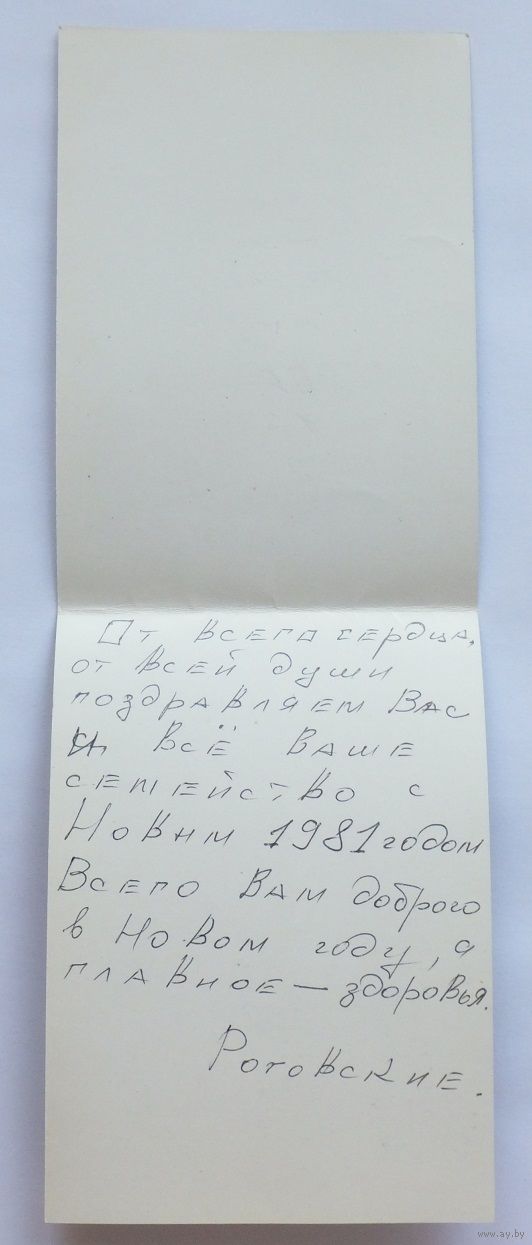 От всего сердца,
от всей души
поздравляем Вас
и всё ваше
семейство с
Новым 1981 годом
Всего вам доброго
в Новом году, а
главное — здоровья.
Роговские.
www.ay.by